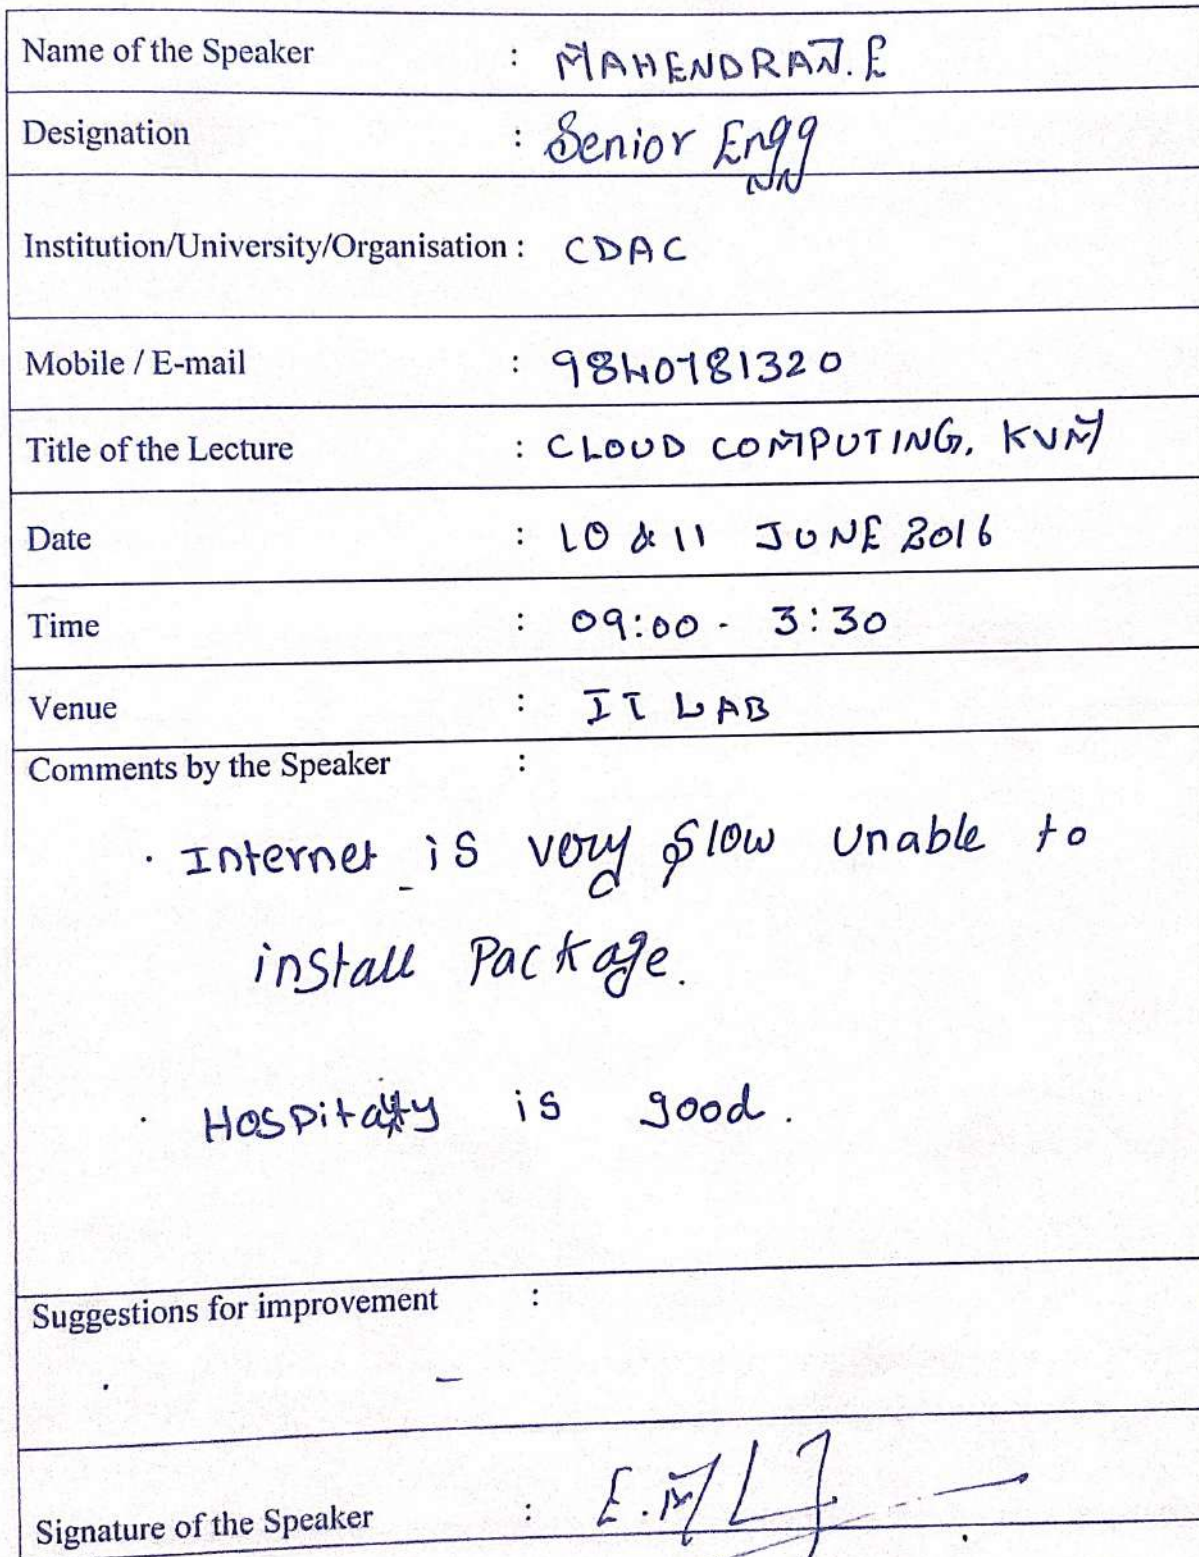 Name of the Speaker : MAHENDRAN.E
Designation : Senior Engg
Institution/University/Organisation : CDAC
Mobile / E-mail : 9840781320
Title of the Lecture : CLOUD COMPUTING, KVM
Date : 10 & 11 JUNE 2016
Time : 09:00 - 3:30
Venue : IT LAB
Comments by the Speaker :
· Internet is very slow unable to
install Package.
· Hospitality is good.
Suggestions for improvement :
· -
Signature of the Speaker : E.M